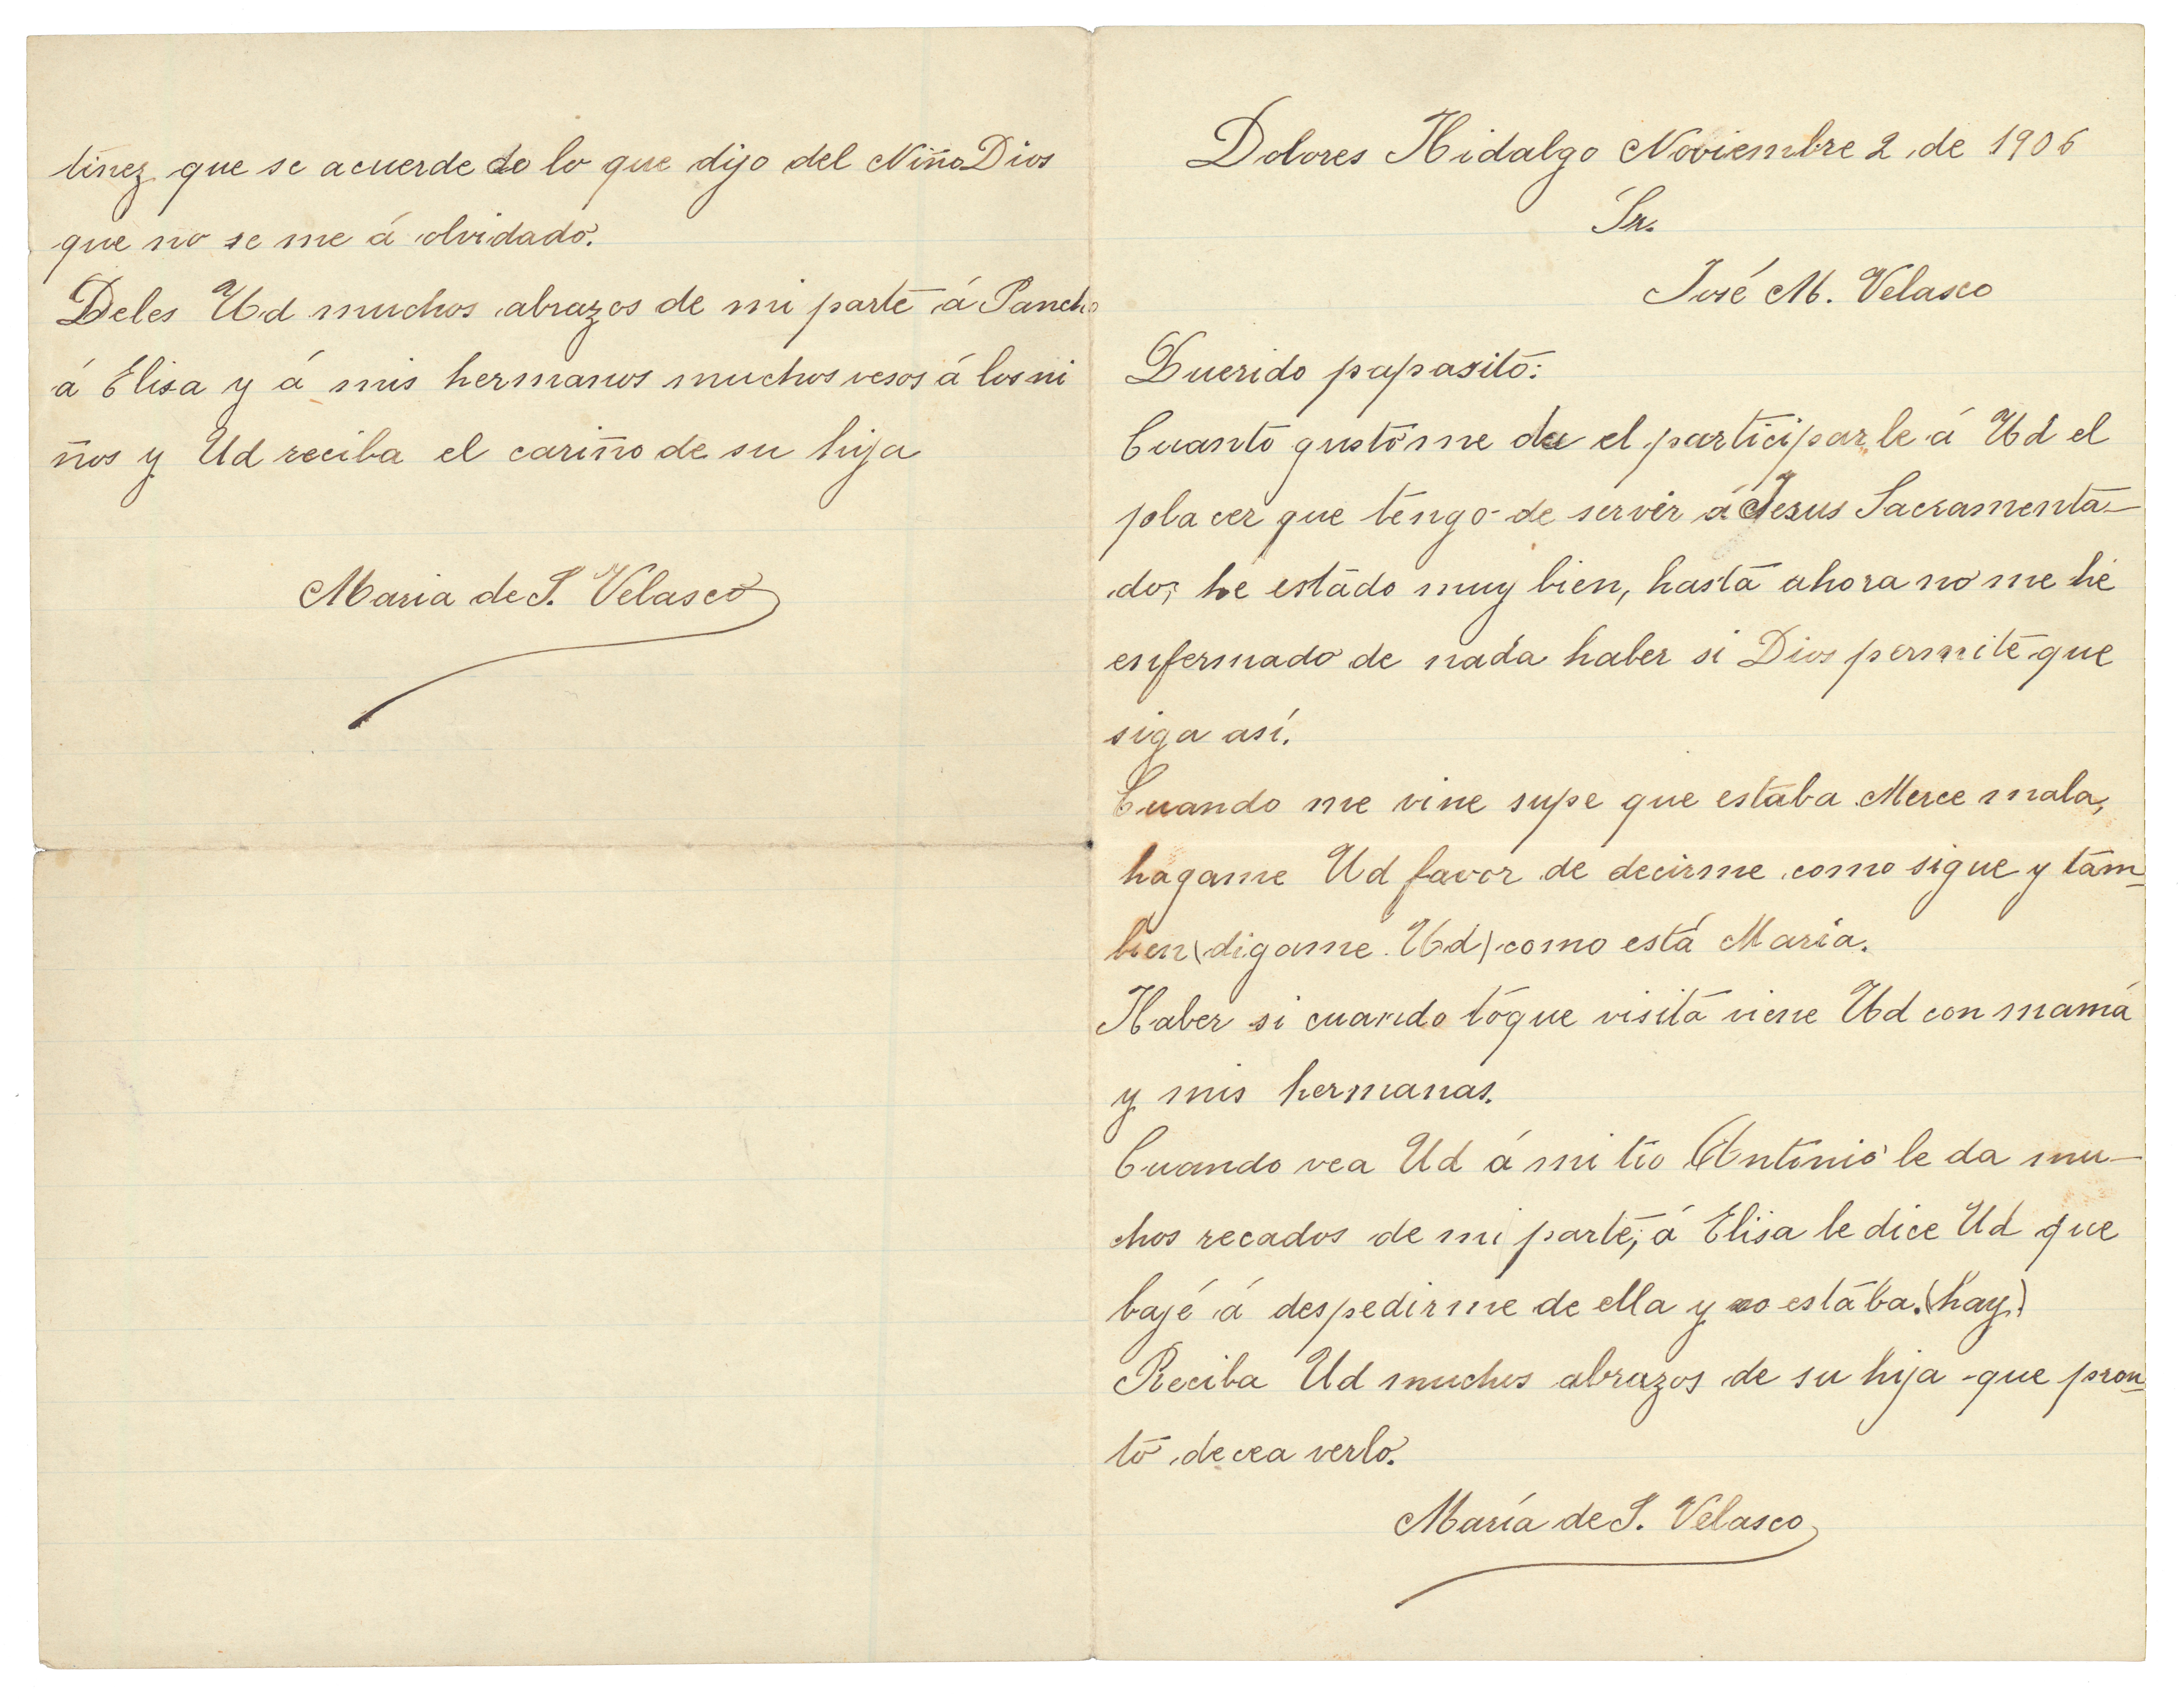 Dolores Hidalgo Noviembre 2 de 1906
Sr.
José M. Velasco
Querido papasito:
Cuanto gusto me da el participarle á Ud el
placer que tengo de servir á Jesus Sacramenta-
do; he estado muy bien, hasta ahora no me he
enfermado de nada haber si Dios permite que
siga así.
Cuando me vine supe que estaba Merce mala,
hagame Ud favor de decirme como sigue y tam-
bien (digame Ud) como está Maria.
Haber si cuando toque visita viene Ud con mamá
y mis hermanas.
Cuando vea Ud á mi tio Antonio le da mu-
chos recados de mi parte, á Elisa le dice Ud que
bajé á despedirme de ella y no estaba. (hay)
Reciba Ud muchos abrazos de su hija que pron-
to decea verlo.
María de J. Velasco
tinez que se acuerde de lo que dijo del Niño Dios
que no se me á olvidado.
Deles Ud muchos abrazos de mi parte á Pancho
á Elisa y á mis hermanos muchos vesos á los ni
ños y Ud reciba el cariño de su hija
Maria de J. Velasco